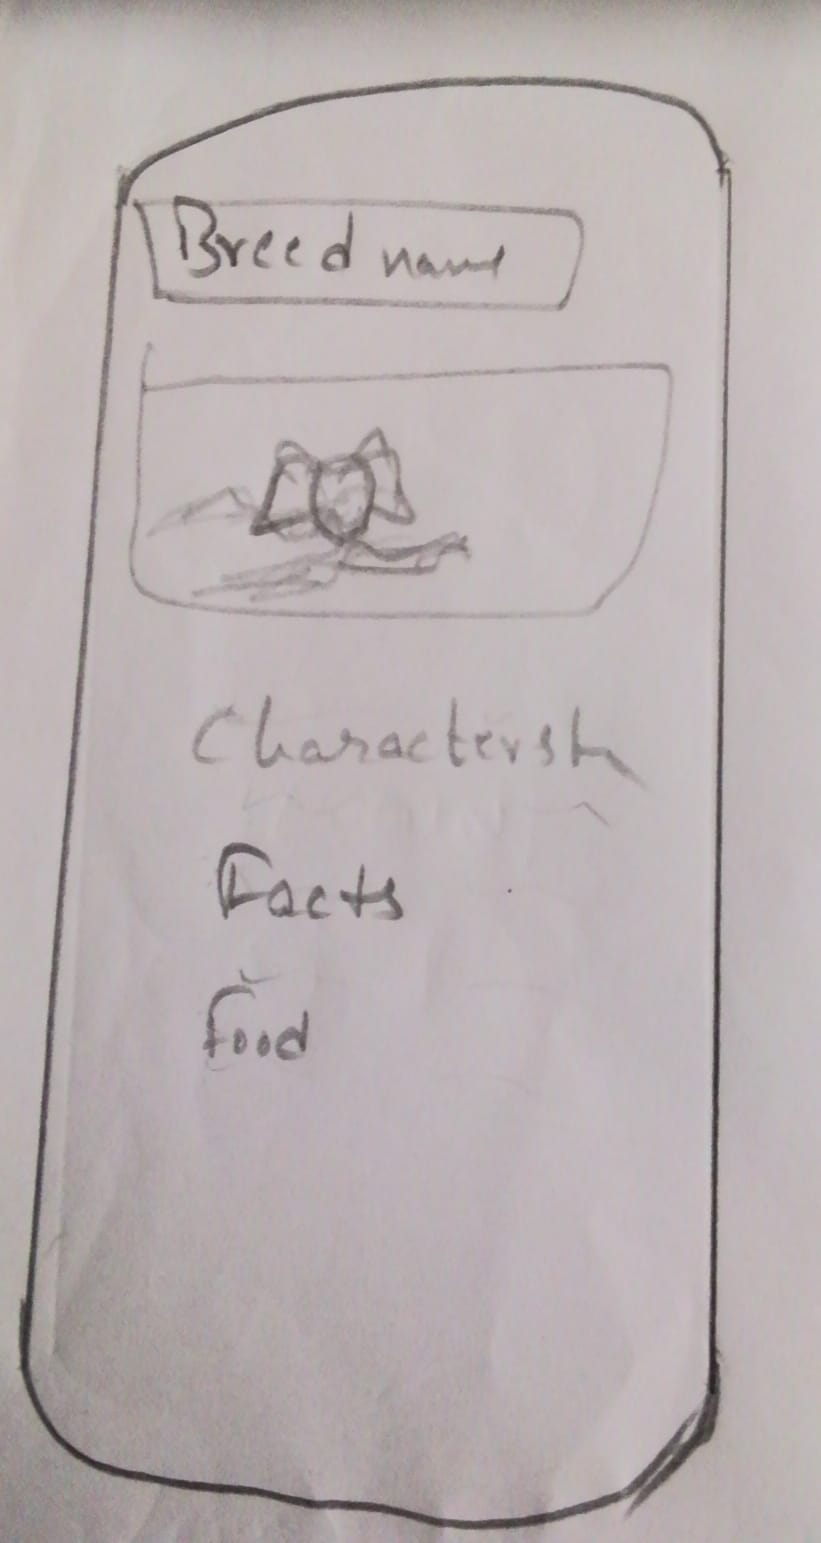 Breed name
Characterst
Facts
Food